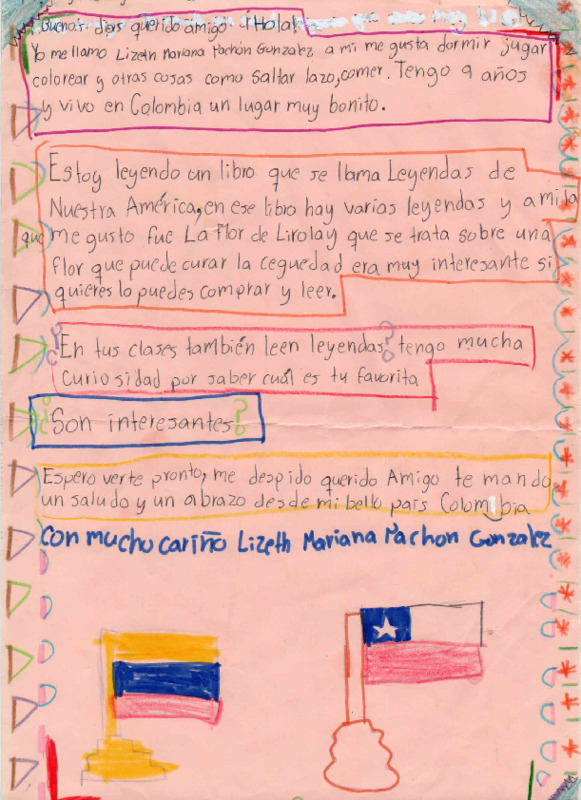 Buenos dias querido amigo ¡Hola!
Yo me llamo Lizeth Mariana Pachón Gonzalez a mi me gusta dormir jugar
colorear y otras cosas como saltar lazo, comer. Tengo 9 años
y vivo en Colombia un lugar muy bonito.
Estoy leyendo un libro que se llama Leyendas de
Nuestra América, en ese libro hay varias leyendas y a mi la
que me gusto fue La Flor de Lirolay que se trata sobre una
flor que puede curar la ceguedad era muy interesante si
quieres lo puedes comprar y leer.
¿En tus clases también leen leyendas? tengo mucha
curiosidad por saber cuál es tu favorita
¿Son interesantes?
Espero verte pronto, me despido querido Amigo te mando
un saludo y un abrazo desde mi bello país Colombia
con mucho cariño Lizeth Mariana Pachon Gonzalez